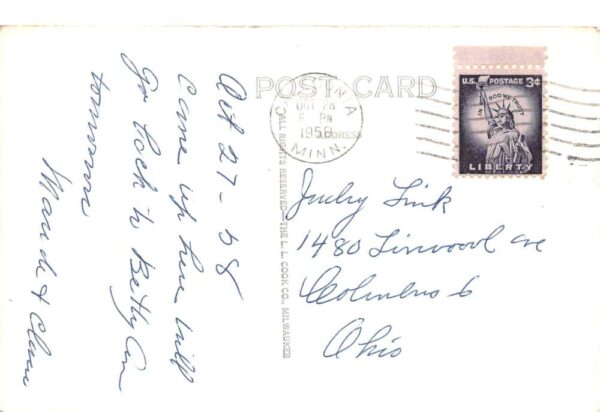 POST CARD
ADDRESS
OCT 28
6 PM
1958
MINN.
U.S. POSTAGE 3¢
IN GOD WE TRUST
LIBERTY
ALL RIGHTS RESERVED—THE L. L. COOK CO., MILWAUKEE
Oct 27-58
came up here will
go back to Betty Ann
tomorrow
Maude &
Judy Link
1480 Linwood Ave
Columbus 6
Ohio